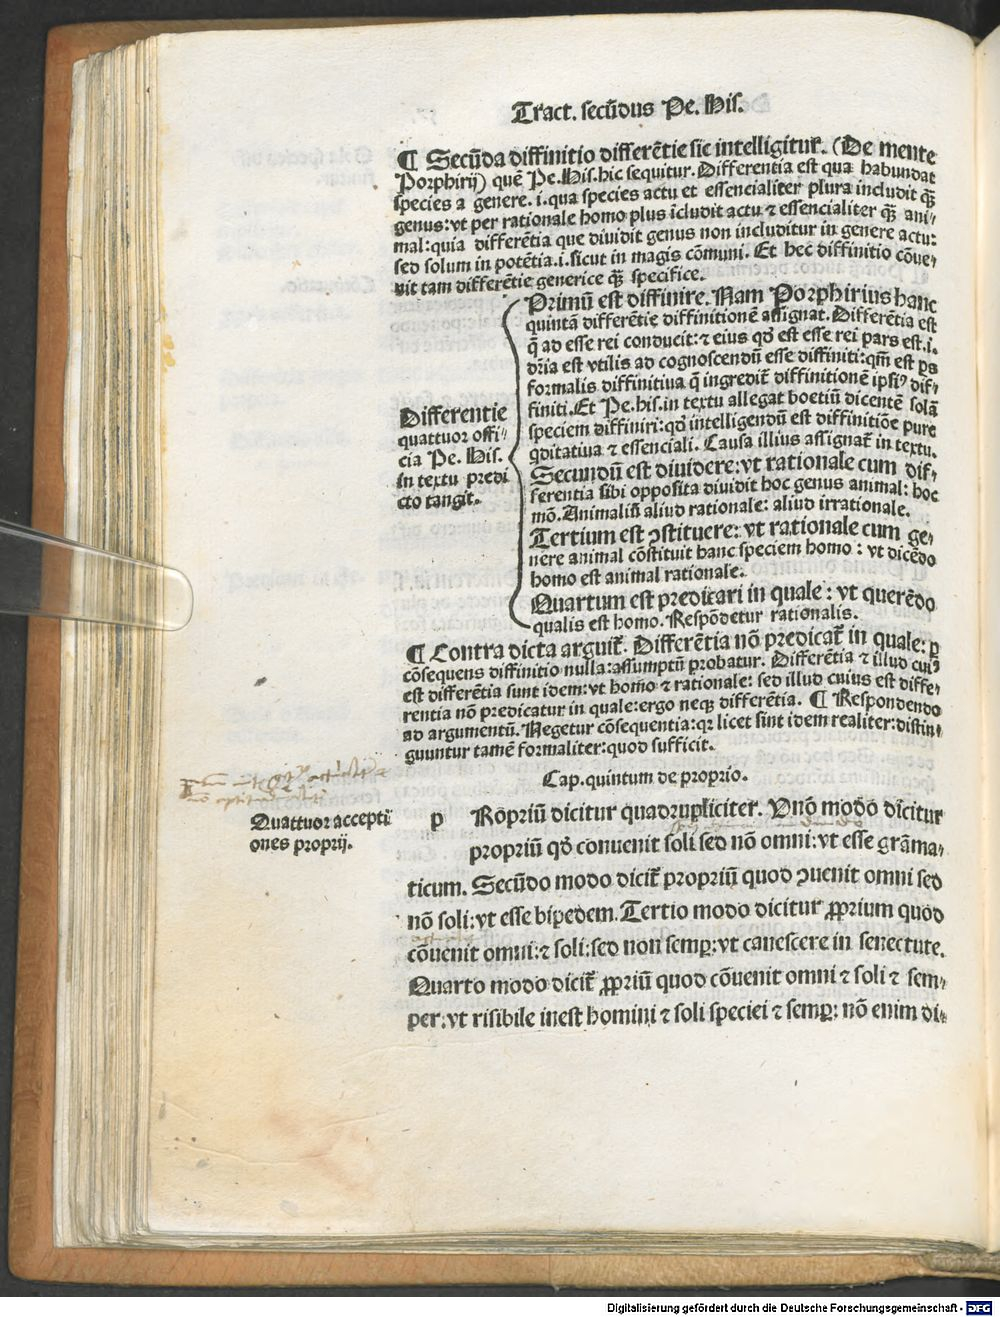 Tract. secũdus Pe. His.
¶ Secũda diffinitio differẽtie sic intelligitur. (De mente
Porphirij) quẽ Pe. His. hic sequitur. Differentia est qua habundat
species a genere. i. qua species actu et essencialiter plura includit q̃
genus: vt per rationale homo plus icludit actu ⁊ essencialiter q̃ ani⸗
mal: quia differẽtia que diuidit genus non includitur in genere actu:
sed solum in potẽtia. i. sicut in magis cõmuni. Et hec diffinitio cõue⸗
nit tam differẽtie generice q̃ specifice.
Differentie
quattuor offi⸗
cia Pe. His.
in textu predi
cto tangit.
Primũ est diffinire. Nam Porphirius hanc
quintã differẽtie diffinitionẽ assignat. Differẽtia est
q̃ ad esse rei conducit: ⁊ eius qđ est esse rei pars est. i.
dr̃ia est vtilis ad cognoscendũ esse diffiniti: qm̃ est ps
formalis diffinitiua q̃ ingredit̃ diffinitionẽ ipsiꝰ dif⸗
finiti. Et Pe. his. in textu allegat boetiũ dicentẽ solã
speciem diffiniri: qđ intelligendũ est diffinitiõe pure
qditatiua ⁊ essenciali. Causa illius assignat̃ in textu.
Secundũ est diuidere: vt rationale cum dif⸗
ferentia sibi opposita diuidit hoc genus animal: hoc
mõ. Animaliũ aliud rationale: aliud irrationale.
Tertium est ꝯstituere: vt rationale cum ge⸗
nere animal cõstituit hanc speciem homo: vt dicẽdo
homo est animal rationale.
Quartum est predicari in quale: vt querẽdo
qualis est homo. Respõdetur rationalis.
¶ Contra dicta arguit̃. Differẽtia nõ predicat̃ in quale: ꝑ
cõsequens diffinitio nulla: assumptũ probatur. Differẽtia ⁊ illud cuiꝰ
est differẽtia sunt idem: vt homo ⁊ rationale: sed illud cuius est diffe⸗
rentia nõ predicatur in quale: ergo neqꝫ differẽtia. ¶ Respondendo
ad argumentũ. Negetur cõsequentia: qꝛ licet sint idem realiter: distin⸗
guuntur tamẽ formaliter: quod sufficit.
Cap. quintum de proprio.
Quattuor accepti
ones proprij.
p Ropriũ dicitur quadrupliciter. Vnõ modõ dicitur
propriũ qđ conuenit soli sed nõ omni: vt esse grãma⸗
ticum. Secũdo modo dicit̃ propriũ quod ꝯuenit omni sed
nõ soli: vt esse bipedem. Tertio modo dicitur ꝓprium quod
cõuenit omni: ⁊ soli: sed non semꝑ: vt canescere in senectute.
Quarto modo dicit̃ ꝓpriũ quod cõuenit omni ⁊ soli ⁊ sem⸗
per: vt risibile inest homini ⁊ soli speciei ⁊ semꝑ: nõ enim di⸗
Digitalisierung gefördert durch die Deutsche Forschungsgemeinschaft - DFG